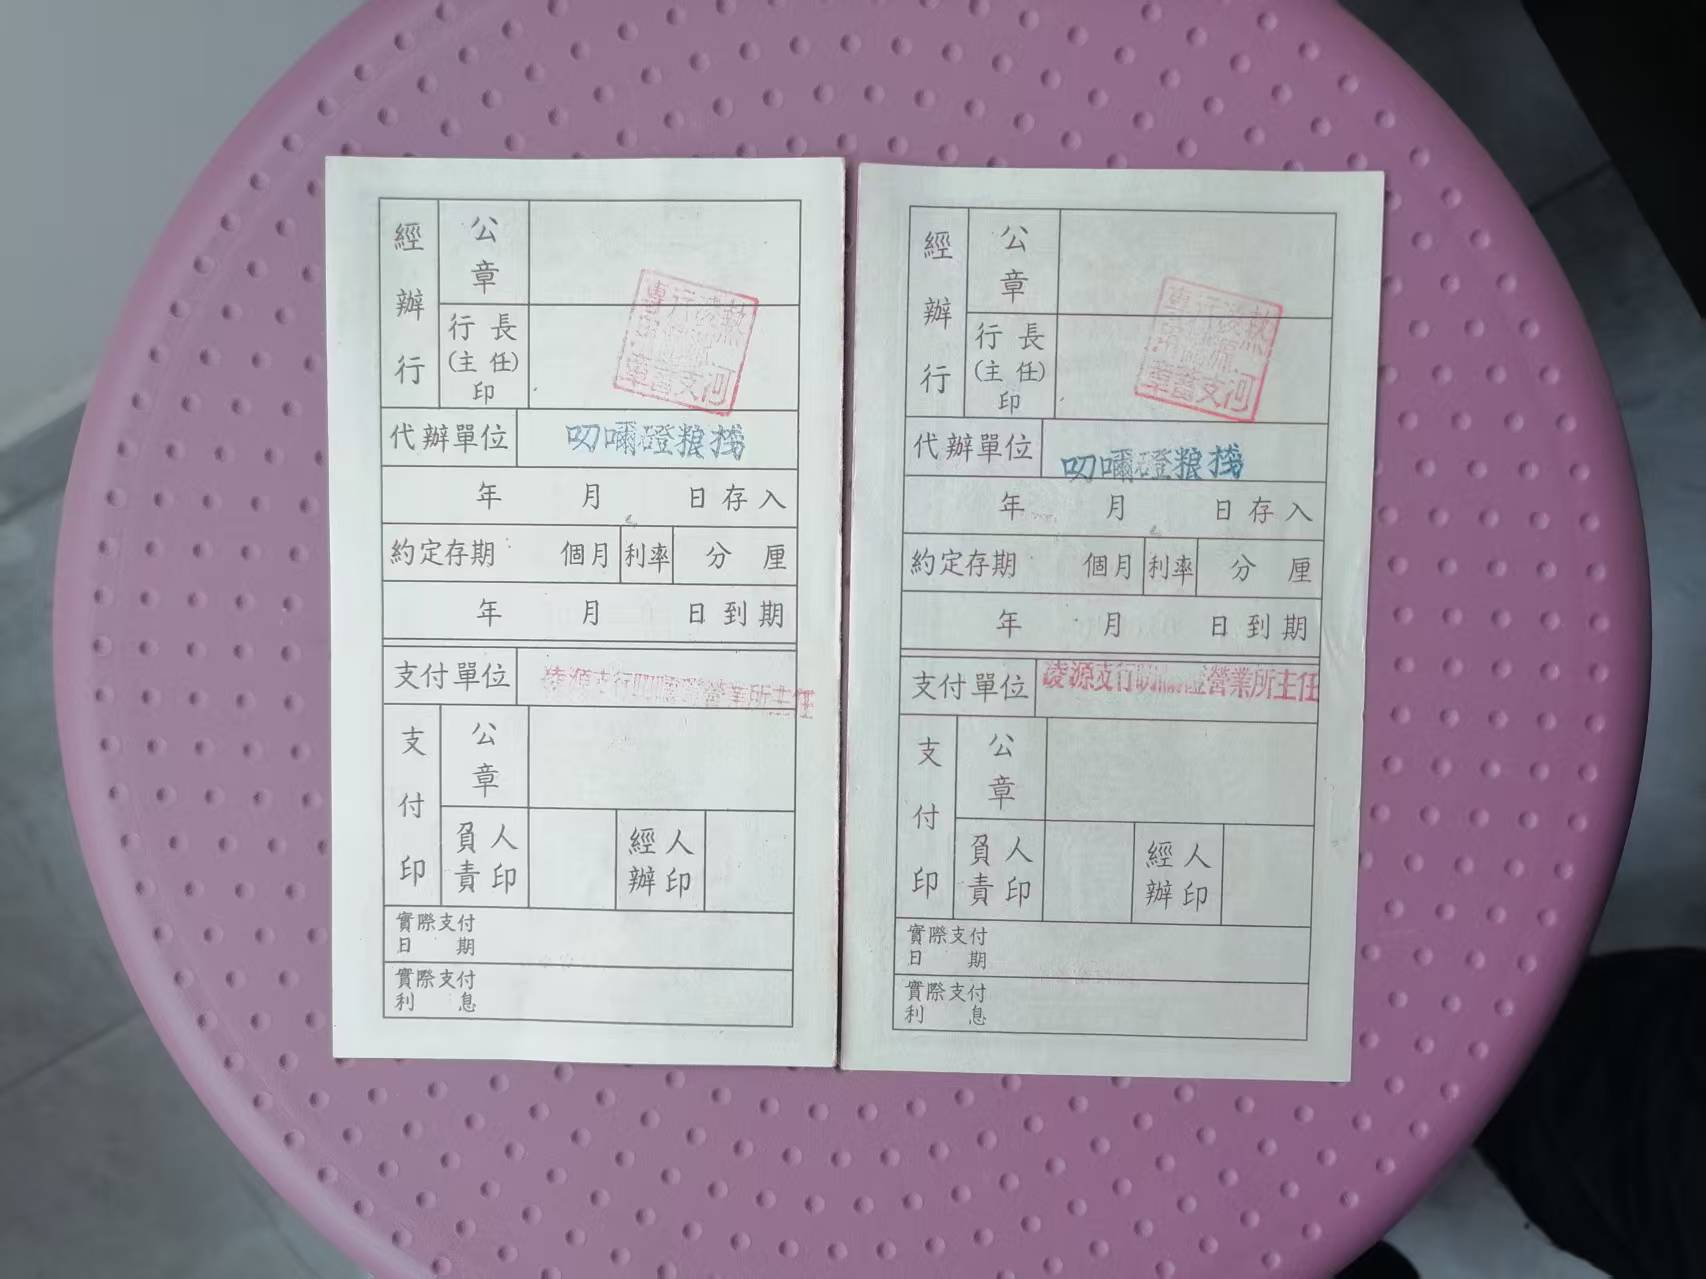 經辦行
公章
行長
(主任)
印
熱河
凌源支
行
專
章
代辦單位
叨嚩磴粮棧
年 月 日存入
約定存期 個月 利率 分 厘
年 月 日到期
支付單位
凌源支行叨嚩磴營業所主任
支付印
公章
負責人印
經辦人印
實際支付
日期
實際支付
利息
經辦行
公章
行長
(主任)
印
熱河
凌源支
行
專
章
代辦單位
叨嚩磴粮棧
年 月 日存入
約定存期 個月 利率 分 厘
年 月 日到期
支付單位
凌源支行叨嚩磴營業所主任
支付印
公章
負責人印
經辦人印
實際支付
日期
實際支付
利息